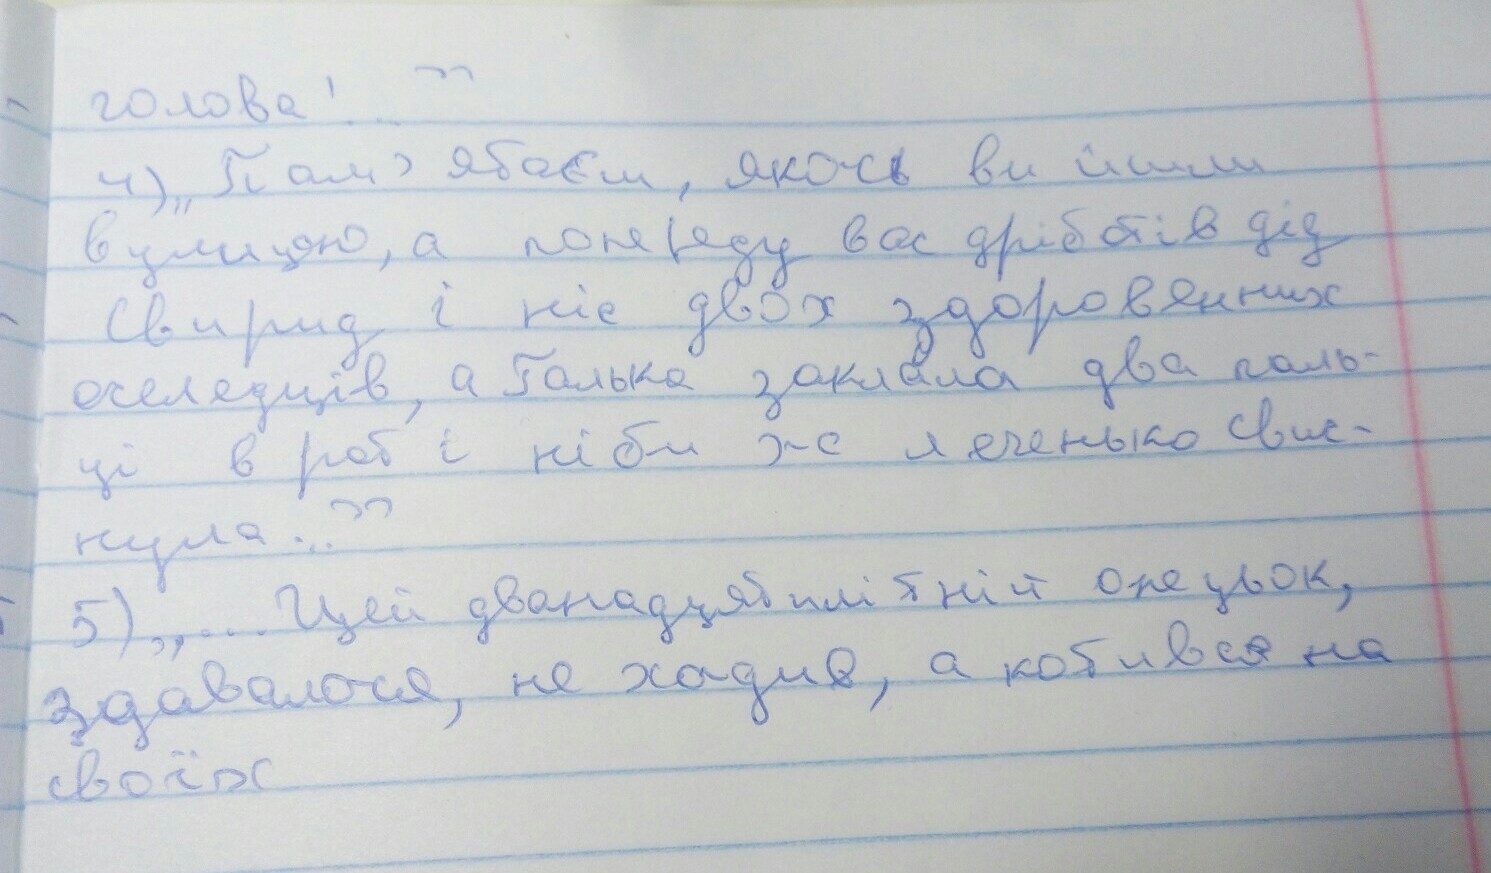 голова!..."
4) „Пам'ятаєш, якось ви йшли
вулицею, а попереду вас дріботів дід
Свирид і ніс двох здоровенних
оселедців, а Галька заклала два паль-
ці в рот і ніби же легенько свис-
нула..."
5) „... Цей дванадцятилітній опецьок,
здавалося, не ходив, а котився на
своїх